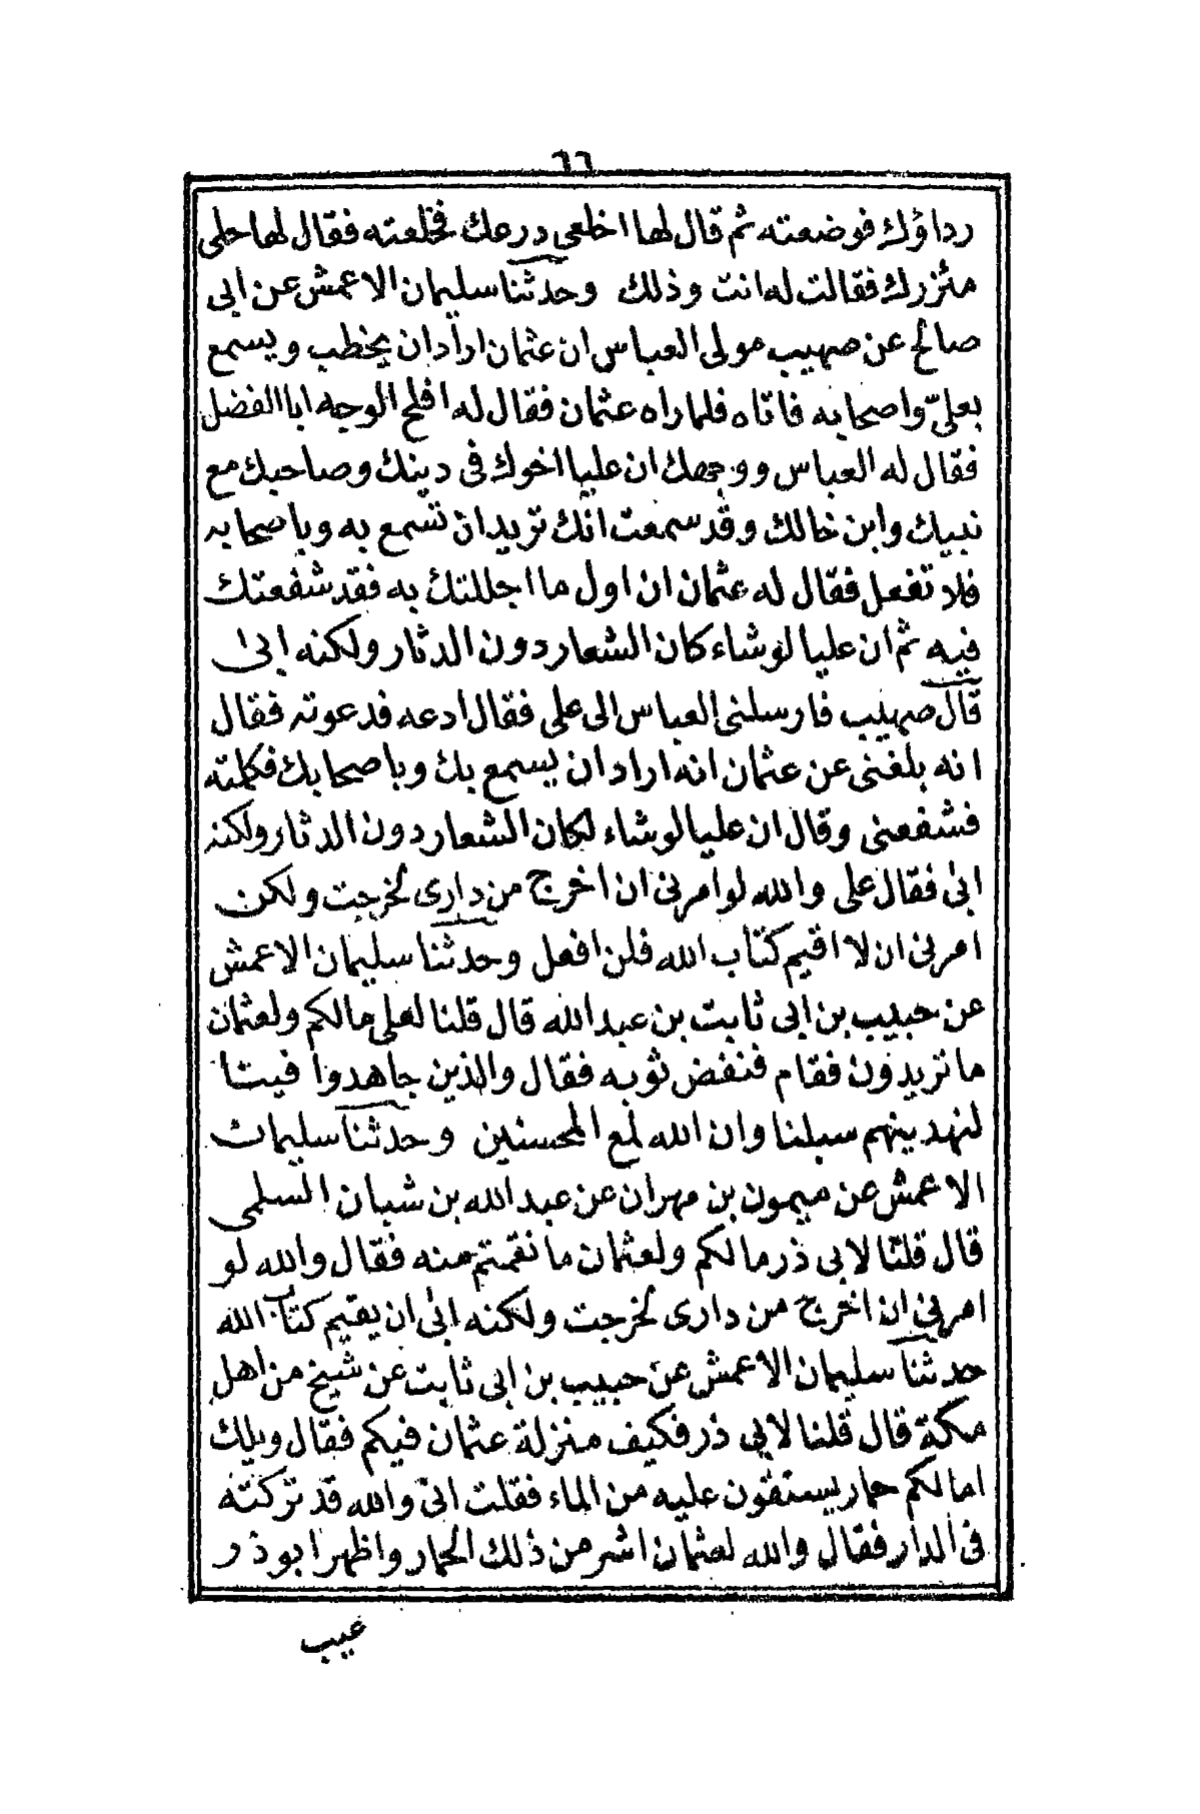 ٦٦
رداؤك فوضعته ثم قال لها اخلعى درعك فخلعته فقال لها حلى
مئزرك فقالت له انت وذلك وحدثنا سليمان الاعمش عن ابى
صالح عن صهيب مولى العباس ان عثمان اراد ان يخطب ويسمع
بعلىّ واصحابه فاتاه فلما راه عثمان فقال له افلح الوجه ابا الفضل
فقال له العباس ووجهك ان عليا اخوك فى دينك وصاحبك مع
نبيك وابن خالك وقد سمعت انك تريد ان تسمع به وباصحابه
فلا تفعل فقال له عثمان ان اول ما اجللتك به فقد شفعتك
فيه ثم ان عليا لو شاء كان الشعار دون الدثار ولكنه ابى
قال صهيب فارسلنى العباس الى على فقال ادعه فدعوته فقال
انه بلغنى عن عثمان انه اراد ان يسمع بك وباصحابك فكلمته
فشفعنى وقال ان عليا لو شاء لكان الشعار دون الدثار ولكنه
ابى فقال على والله لو امرنى ان اخرج من دارى لخرجت ولكن
امرنى ان لا اقيم كتاب الله فلن افعل وحدثنا سليمان الاعمش
عن حبيب بن ابى ثابت بن عبد الله قال قلنا لعلى مالكم ولعثمان
ما تريدون فقام فنفض ثوبه فقال والذين جاهدوا فينا
لنهدينهم سبلنا وان الله لمع المحسنين وحدثنا سليمان
الاعمش عن ميمون بن مهران عن عبد الله بن شبان السلمى
قال قلنا لابى ذر مالكم ولعثمان ما نقمتم منه فقال والله لو
امرنى ان اخرج من دارى لخرجت ولكنه ابى ان يقيم كتاب الله
حدثنا سليمان الاعمش عن حبيب بن ابى ثابت عن شيخ من اهل
مكة قال قلنا لابى ذر فكيف منزلة عثمان فيكم فقال ويلك
امالكم حمار يستقون عليه من الماء فقلت انى والله قد تركته
فى الدار فقال والله لعثمان اشر من ذلك الحمار واظهر ابو ذر
عيب